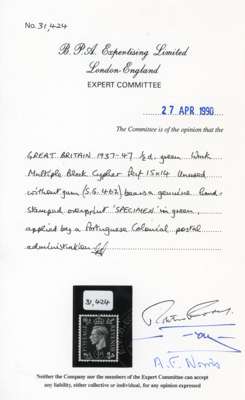 No. 31,424
B. P. A. Expertising Limited
London-England
EXPERT COMMITTEE
27 APR 1990
The Committee is of the opinion that the
GREAT BRITAIN 1937-47 ½d. green Wmk
Multiple Block Cypher Perf 15x14 Unused
without gum (S.G. 462) bears a genuine hand-
stamped overprint 'SPECIMEN' in green,
applied by a Portuguese Colonial postal
administration
31,424
A. F. Norris
Neither the Company nor the members of the Expert Committee can accept
any liability, either collective or individual, for any opinion expressed